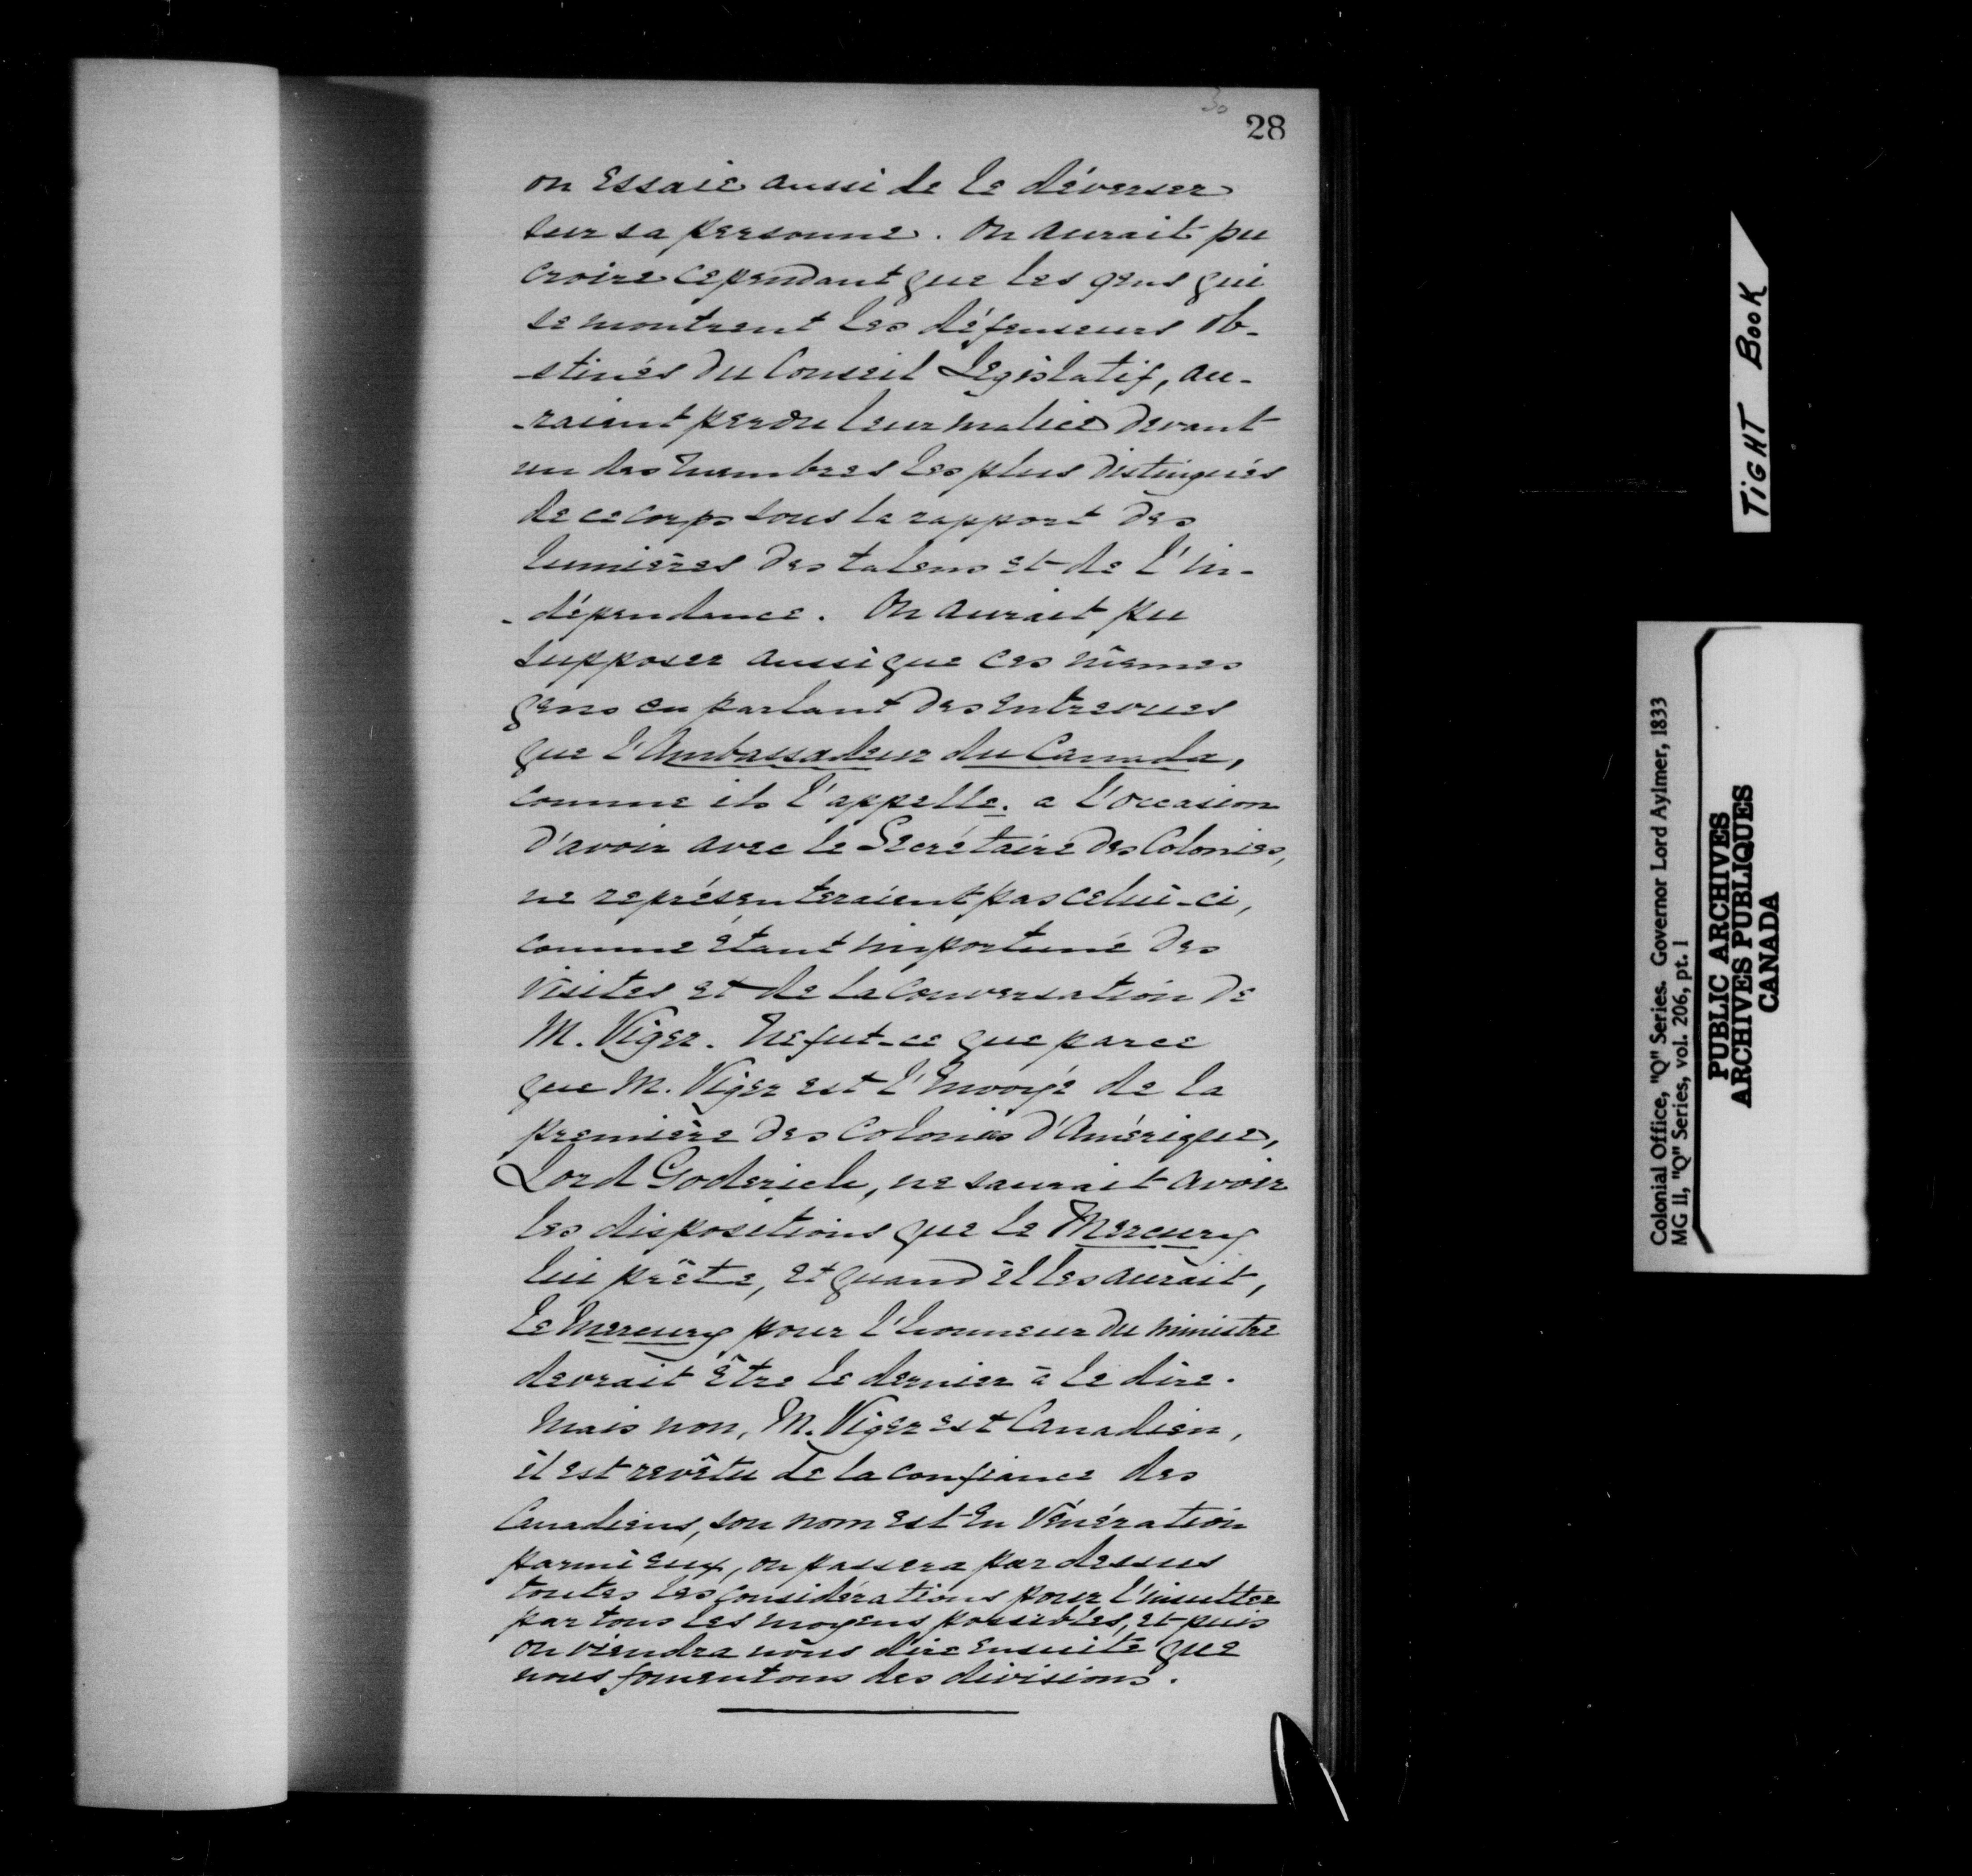 30
28
on essaie aussi de le déverser
sur sa personne. On aurait pu
croire cependant que les gens qui
se montrent les défenseurs ob-
-stinés du Conseil Législatif, au-
-raient perdu leur malice devant
un des membres les plus distingués
de ce corps sous le rapport des
lumières des talens et de l'in-
-dépendance. On aurait pu
supposer aussi que ces mêmes
gens en parlant des entrevues
que l'Ambassadeur du Canada,
comme ils l'appelle. a l'occasion
d'avoir avec le Secrétaire des Colonies,
ne représenteraient pas celui-ci,
comme étant importuné des
visites et de la conversation de
M. Viger. Ne fut-ce que parce
que M. Viger est l'Envoyé de la
première des Colonies d'Amérique,
Lord Goderich, ne saurait avoir
les dispositions que le Mercury
lui prête, et quand il les aurait,
le Mercury pour l'honneur du ministre
devrait être le dernier à le dire.
Mais non, M. Viger est Canadien,
il est revêtu de la confiance des
Canadiens, son nom est en vénération
parmi eux, on passera par dessus
toutes les considérations pour l'insulter
par tous les moyens possibles, et puis
on viendra nous dire ensuite que
nous fomentons des divisions.
TIGHT BOOK
Colonial Office, "Q" Series. Governor Lord Aylmer, 1833
MG 11, "Q" Series, vol. 206, pt. 1
PUBLIC ARCHIVES
ARCHIVES PUBLIQUES
CANADA